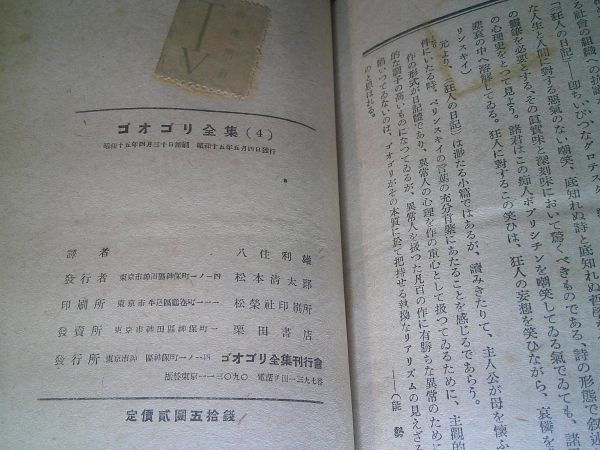 ゴオゴリ全集(4)
昭和十五年四月三十日印刷 昭和十五年五月四日發行
譯者 八住利雄
發行者 東京市神田區神保町一ノ一四 松本淸太郎
印刷所 東京市牛込區鶴卷町一一一 松榮社印刷所
發賣所 東京市神田區神保町一 栗田書店
發行所 東京市神 區神保町一ノ一四 ゴオゴリ全集刊行會
振替東京一一三〇九〇 電話
定價貳圓五拾錢
る社會の組織への抗
「『狂人の日記』――卽ちいびつなグロテスク
な人生と人間に對する惡氣のない嘲笑、底知れぬ詩と底知れぬ哲學
の鑛床を必要とする、その眞實味と深刻味において驚くべきものである、詩の形態で敍述
の心理史をとつて見よう。諸君はこの痴人ポプリシチンを嘲笑してゐる氣でゐても、諸
悲哀の中へ溶解してゐる。狂人に對するこの笑ひは、狂人の妄想を笑ひながら、哀憐を
リンスキイ)
元より、『狂人の日記』は渺たる小篇ではあるが、讀みきたりて、主人公が母を懷ふ
件にいたる時、ベリンスキイの言葉の充分首肯にあたることを感じるであらう。
作の形式が日記體であり、異常人の心理を作の重心として扱つてゐるために、主觀的
的な調子の高いものになつてゐるが、異常人を扱つた凡百の作に有勝ちな異常のために
陷いつてゐないのは、ゴオゴリがその本質に於て把持せる執拗なリアリズムの見えざる
のと思はれる。
――(能勢